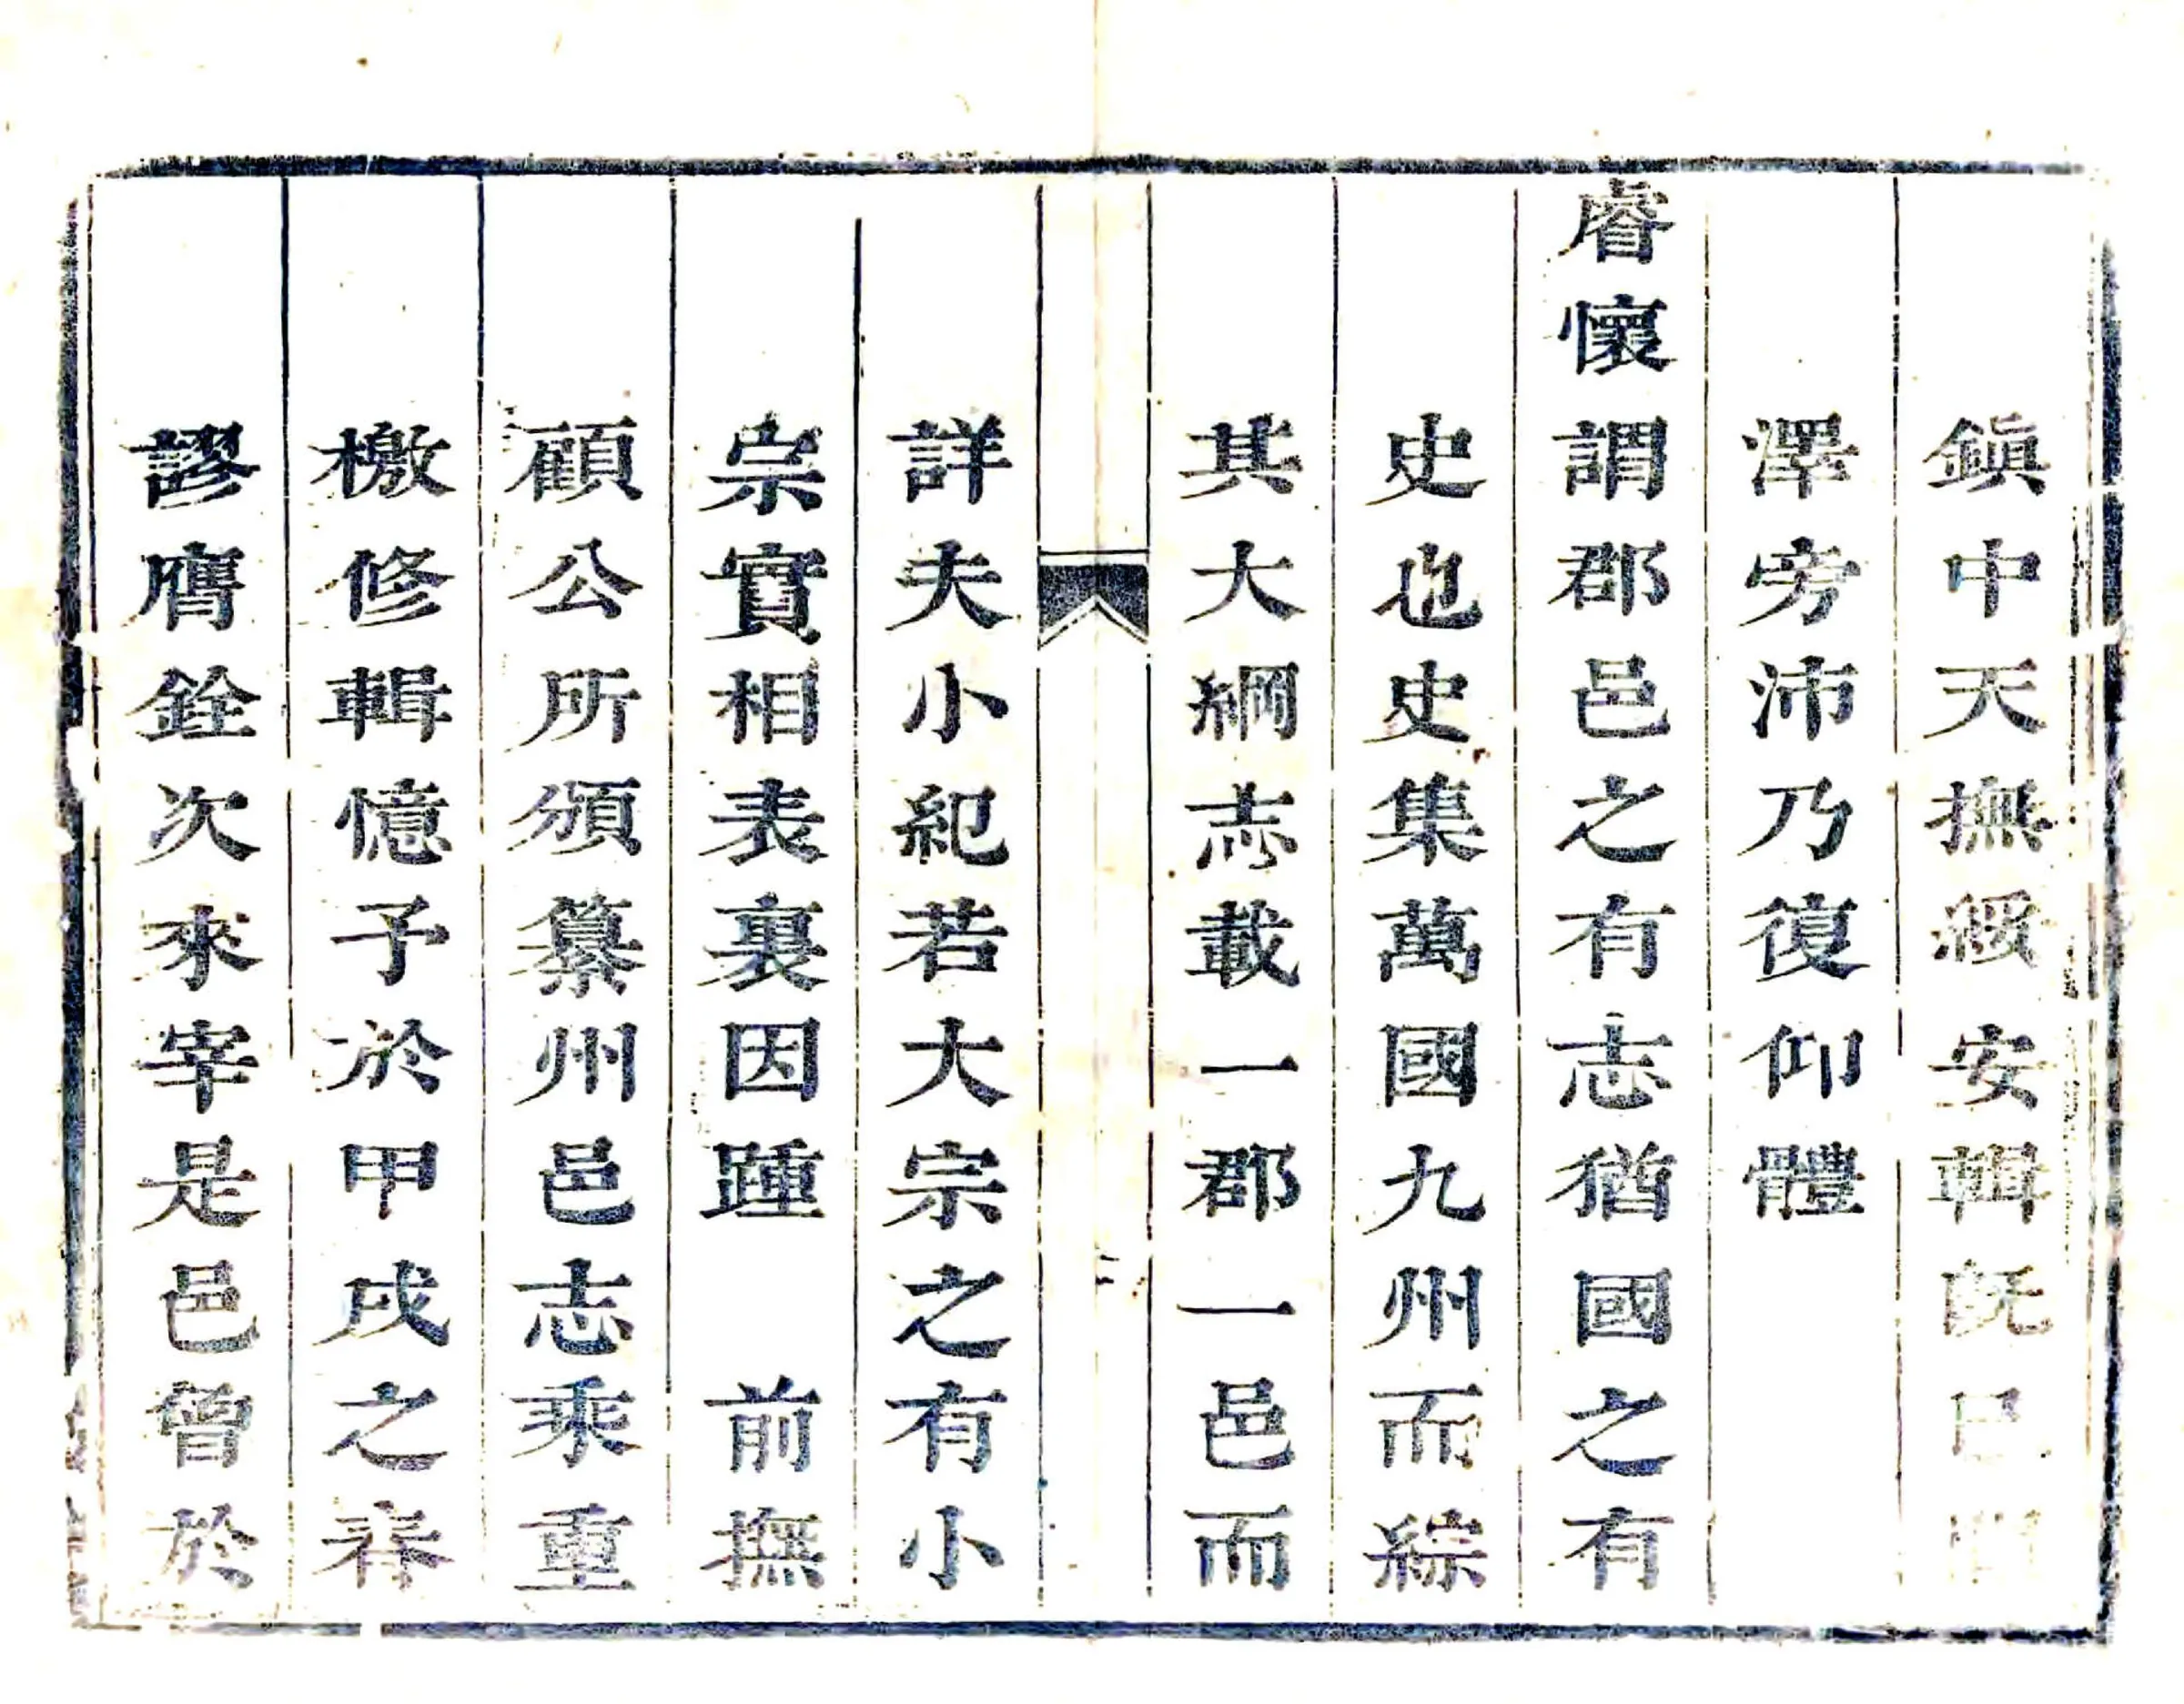 鎮中天撫綏安輯旣巳
澤旁沛乃復仰體
睿懷謂郡邑之有志猶國之有
史也史集萬國九州而綜
其大綱志載一郡一邑而
詳夫小紀若大宗之有小
宗實相表裏因踵　前撫
顧公所頒纂州邑志乘重
檄修輯憶予於甲戌之春
謬膺銓次來宰是邑曾於
二